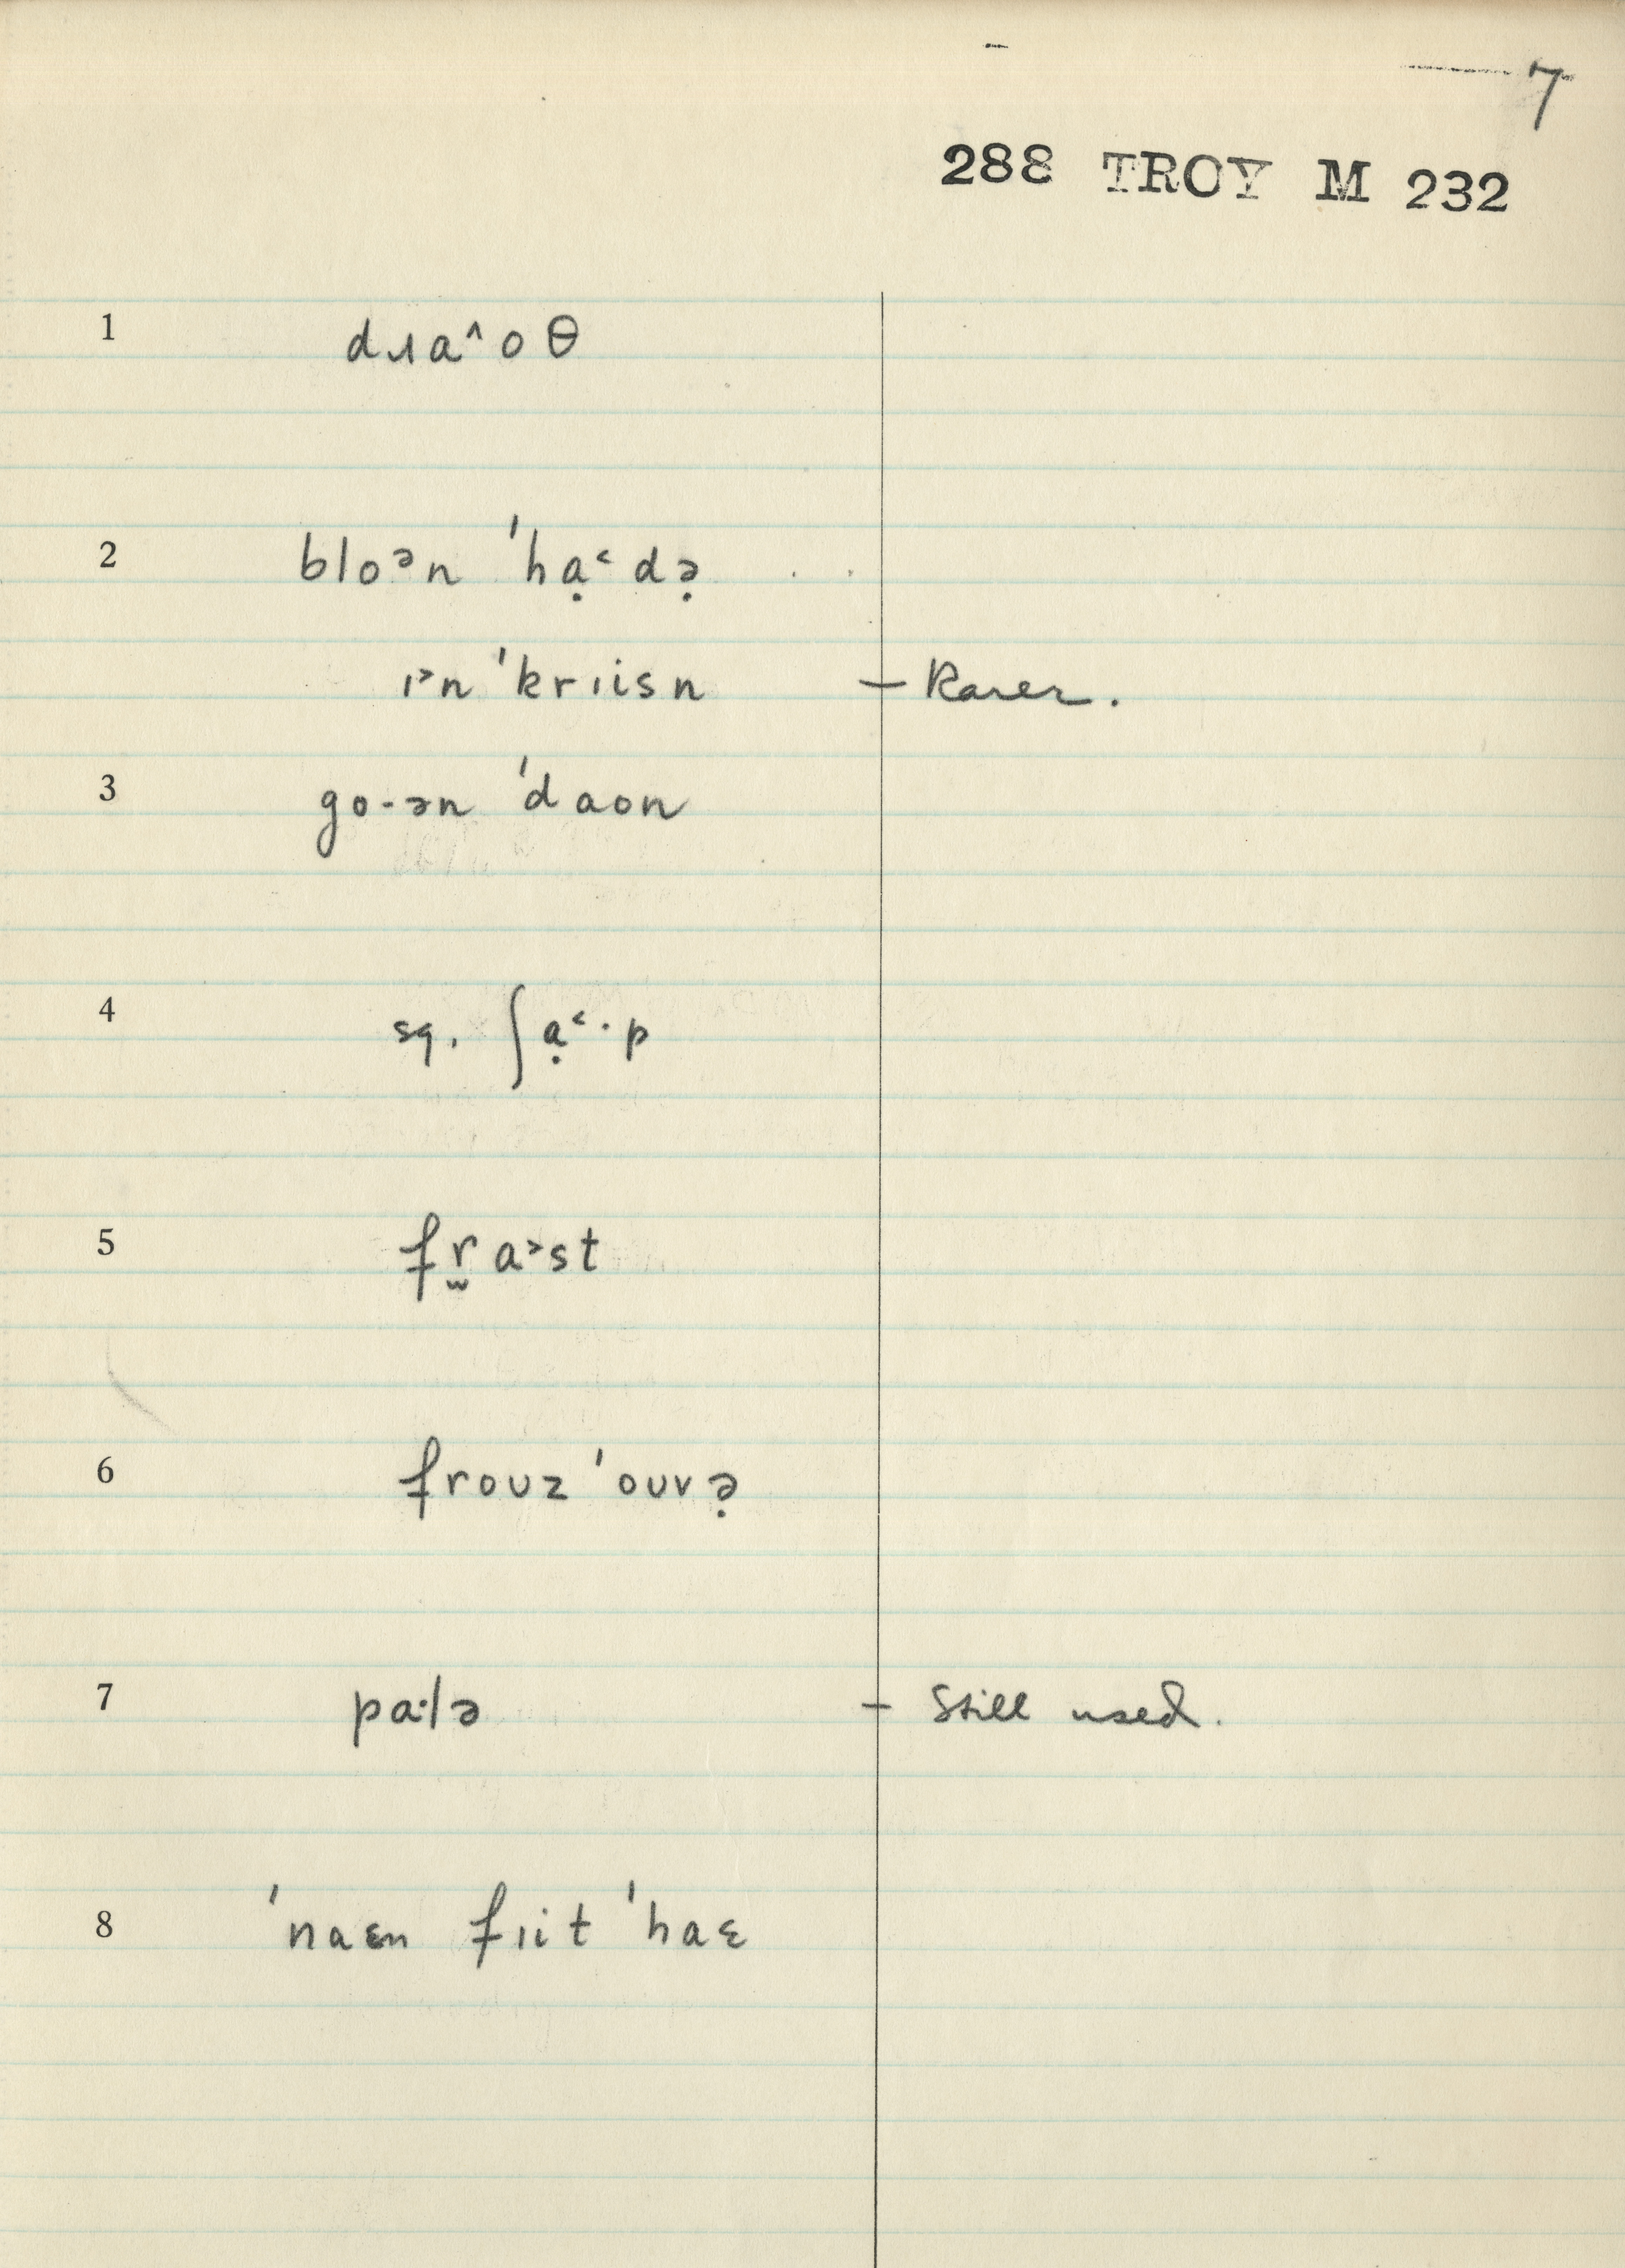 7
288 TROY M 232
1 dɹaˆoθ
2 bloᵊn ˈhạ˂də̣
ɪ˃n ˈkrɪisn – Rarer.
3 go-ən ˈdaon
4 sq. ʃạ˂·p
5 fr̫a˃st
6 froʊz ˈoʊvə̣
7 pa·lə – Still used.
8 ˈnaɛn fɪit ˈhaɛ